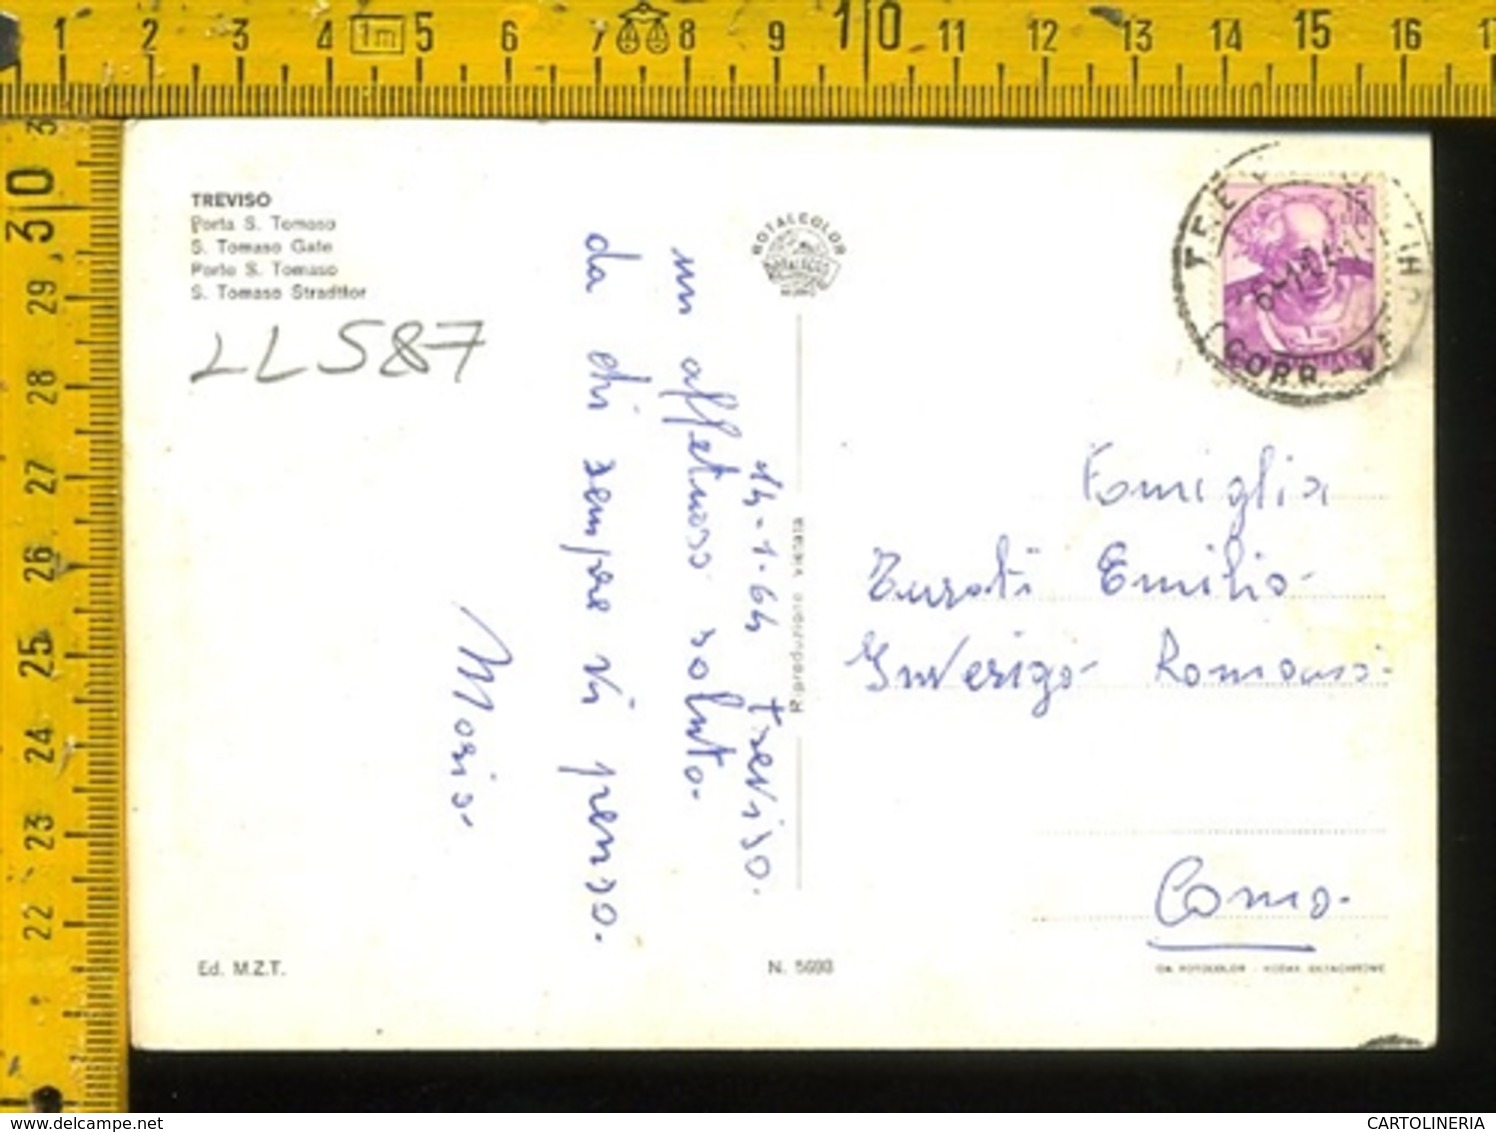 1 2 3 4 1m 5 6 7 8 9 10 11 12 13 14 15 16
30
29
28
27
26
25
24
23
22
TREVISO
Porta S. Tomaso
S. Tomaso Gate
Porte S. Tomaso
S. Tomaso Stradttor
LL587
ROTALCOLOR
CORR
14-1-64 Treviso.
un affettuoso saluto.
da chi sempre vi penso.
Maria.
Riproduzione vietata
Famiglia
Turati Emilio
Inverigo Romano
Como.
Ed. M.Z.T.
N. 5693
DA FOTOCOLOR - KODAK EKTACHROME
www.delcampe.net
CARTOLINERIA